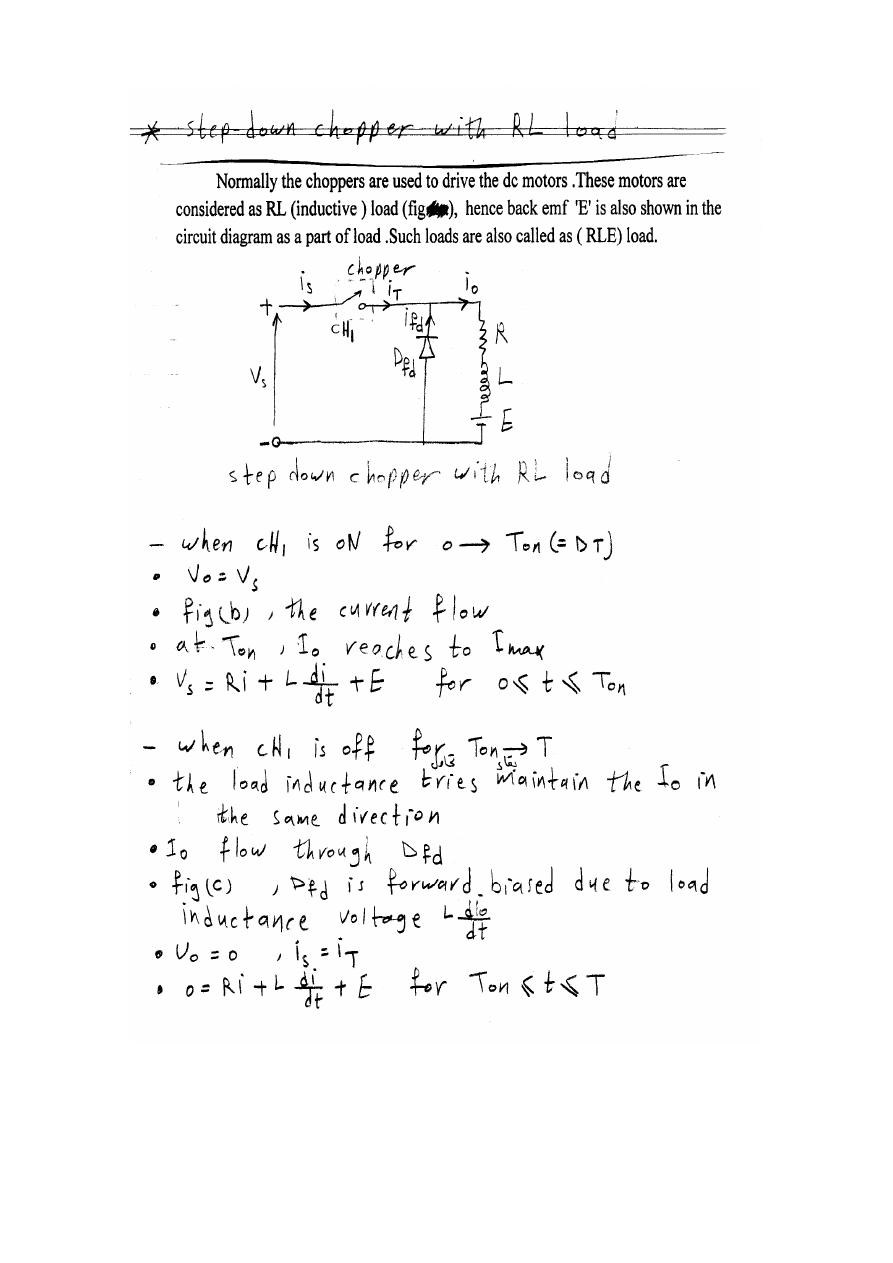 * step-down chopper with RL load
Normally the choppers are used to drive the dc motors .These motors are
considered as RL (inductive ) load (fig), hence back emf 'E' is also shown in the
circuit diagram as a part of load .Such loads are also called as ( RLE) load.
chopper
is
iT
io
+
CH1
ifd
R
Dfd
Vs
L
E
-
step down chopper with RL load
- when CH1 is ON for 0 → Ton (= DT)
• Vo = Vs
• fig(b) , the current flow
• at Ton , Io reaches to Imax
• Vs = Ri + L di/dt + E for 0 ⩽ t ⩽ Ton
- when CH1 is off for Ton → T
• the load inductance tries maintain the Io in
the same direction
• Io flow through Dfd
• fig(c) , Dfd is forward-biased due to load
inductance voltage L dio/dt
• Vo = 0 , is = iT
• 0 = Ri + L di/dt + E for Ton ⩽ t ⩽ T